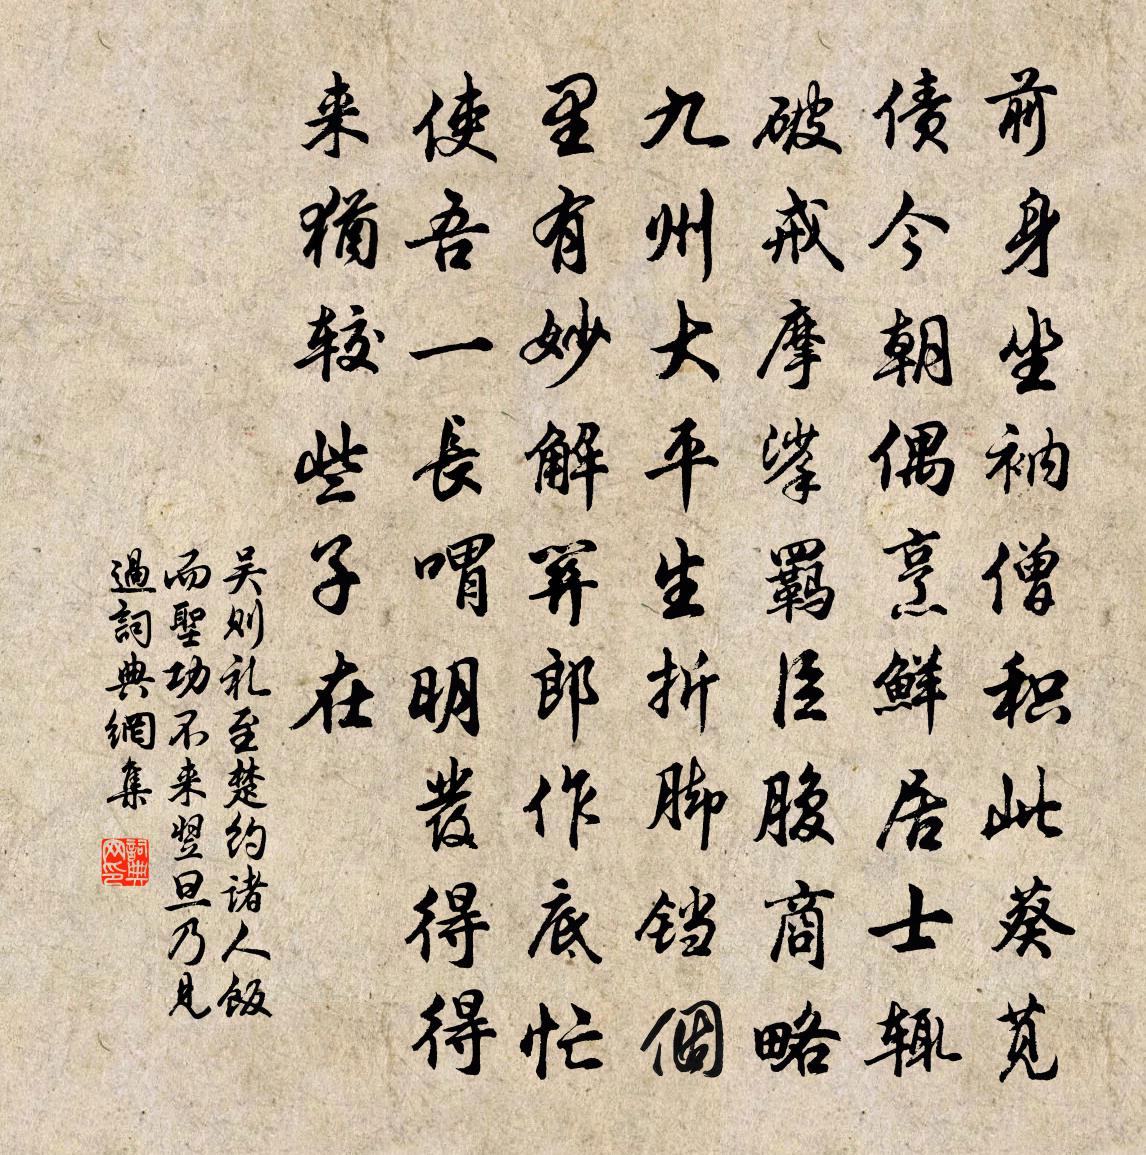 前身坐衲僧积此葵苋
债今朝偶烹鲜居士辄
破戒摩挲羁臣腹商略
九州大平生折脚铛個
里有妙解箅郎作底忙
使吾一長喟明發得得
来猶较些子在
吴则礼至楚约诸人飯
而聖功不来翌旦乃見
過詞典網集
詞典网印